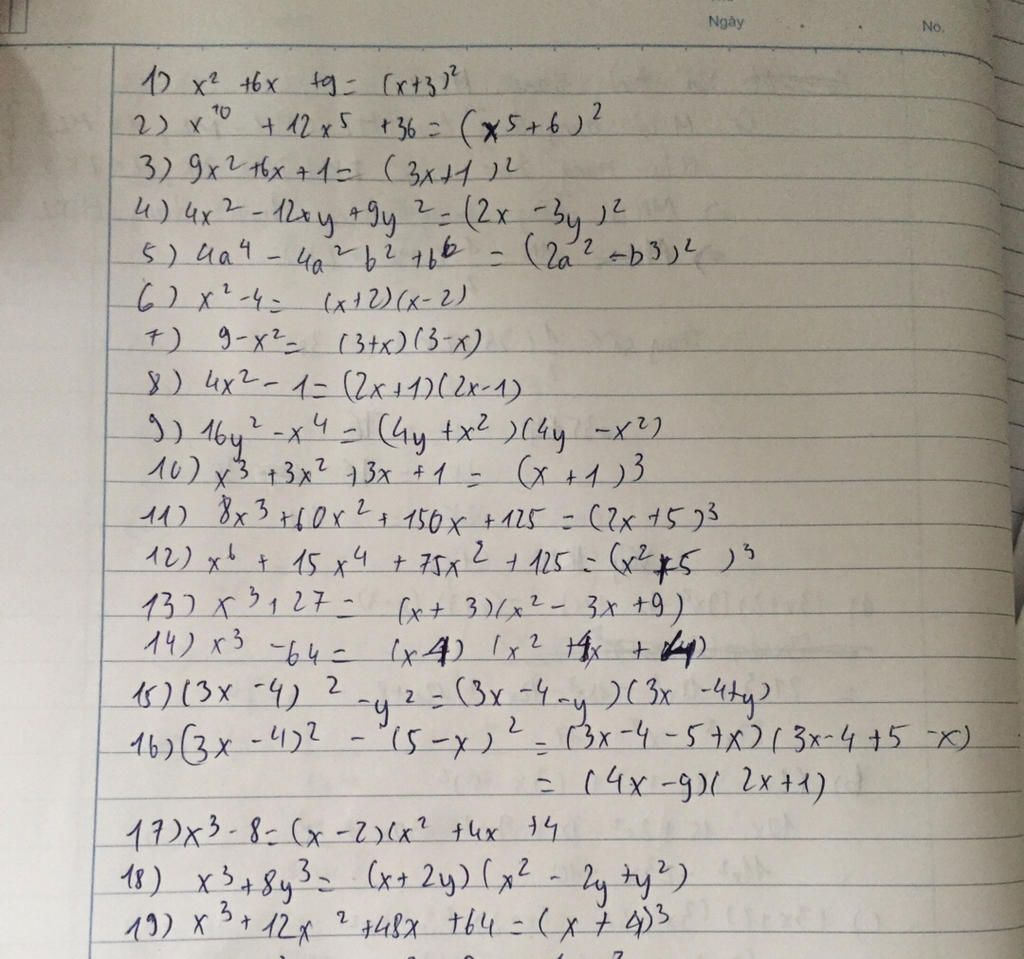 Ngày . . No.
1) x² +6x +9 = (x+3)²
2) x¹⁰ + 12x⁵ +36 = (x⁵+6)²
3) 9x²+6x+1 = (3x+1)²
4) 4x² - 12xy +9y² = (2x -3y)²
5) 4a⁴ - 4a²b² +b⁶ = (2a² -b³)²
6) x²-4 = (x+2)(x-2)
7) 9-x² = (3+x)(3-x)
8) 4x² - 1 = (2x+1)(2x-1)
9) 16y² -x⁴ = (4y +x²)(4y -x²)
10) x³ +3x² +3x +1 = (x +1)³
11) 8x³+60x²+ 150x +125 = (2x+5)³
12) x⁶ + 15x⁴ + 75x² + 125 = (x²+5)³
13) x³+27 = (x+3)(x² - 3x +9)
14) x³ -64 = (x-4) (x² +4x +
15) (3x -4)² -y² = (3x -4-y)(3x -4+y)
16) (3x -4)² - (5-x)² = (3x-4-5+x)(3x-4+5-x)
= (4x -9)(2x+1)
17) x³-8 = (x -2)(x² +4x +4
18) x³+8y³ = (x+2y)(x² - 2y +y²)
19) x³+12x² +48x +64 = (x+4)³